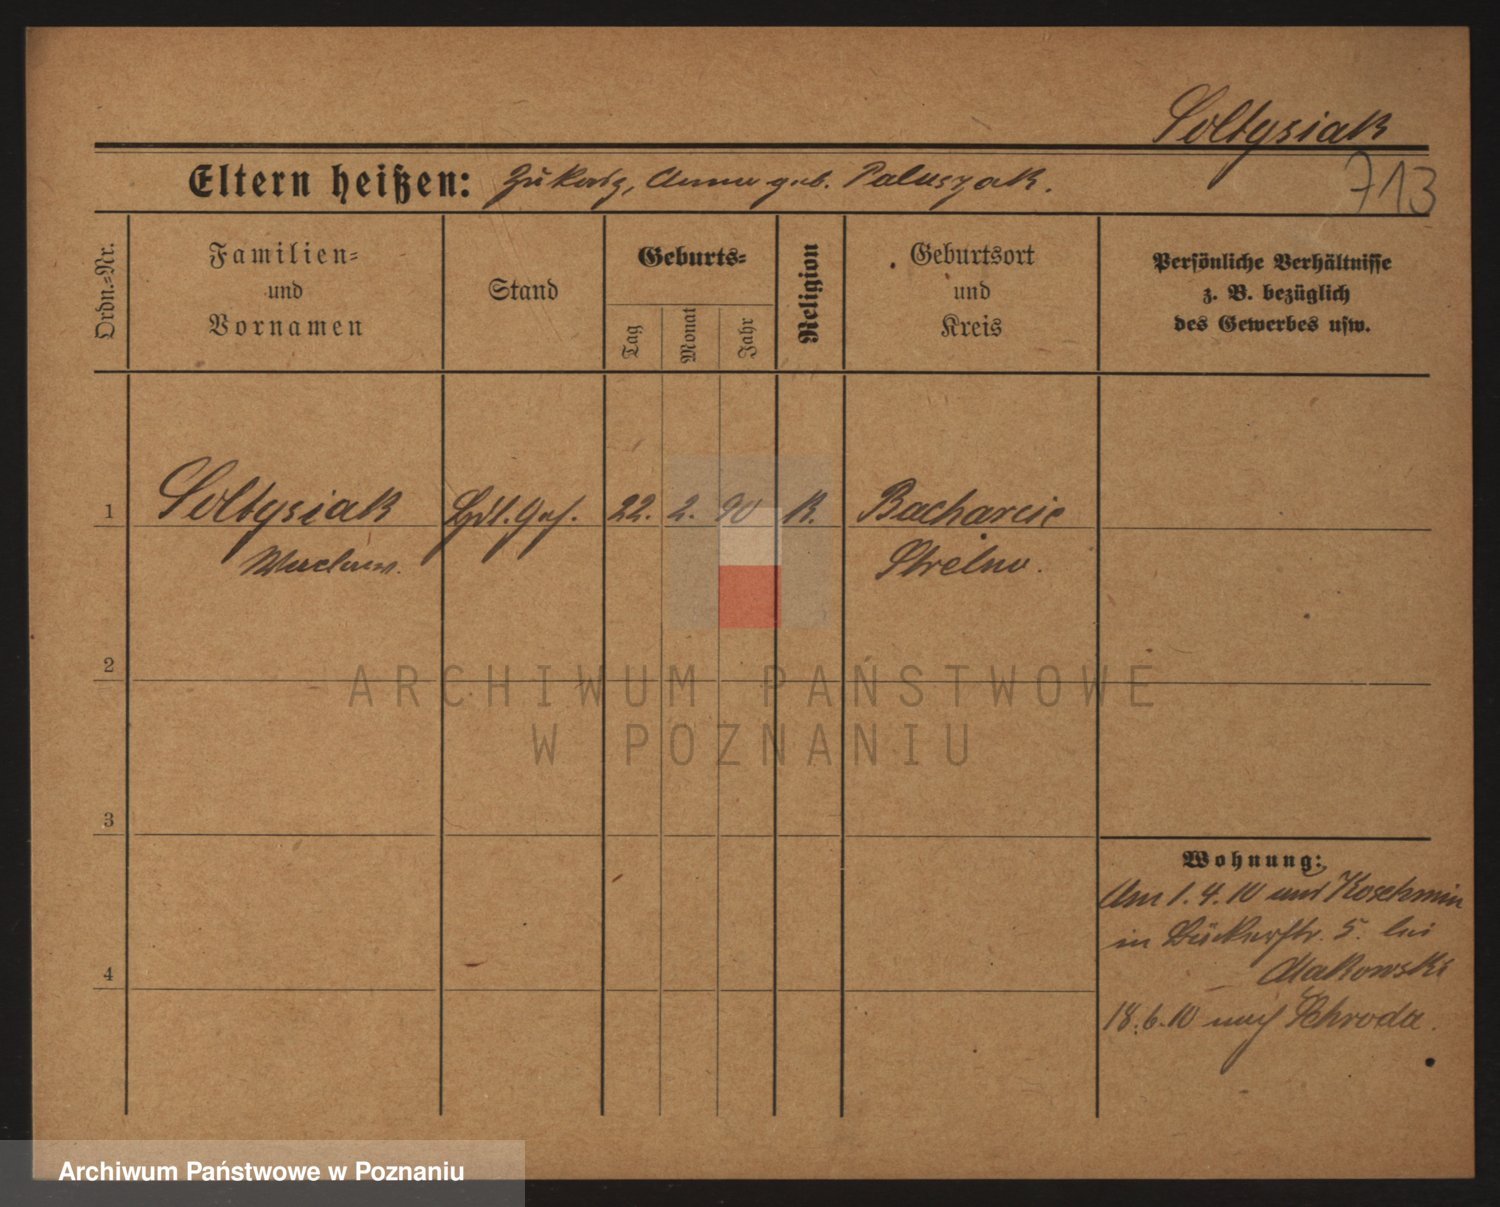 Soltysiak
713
Eltern heißen: Anna geb. Paluszak.
Ordn.-Nr.
Familien-
und
Vornamen
Stand
Geburts-
Tag
Monat
Jahr
Religion
Geburtsort
und
Kreis
Persönliche Verhältnisse
z. B. bezüglich
des Gewerbes usw.
1 Soltysiak 22. 2. 90 K. Bacharcie
Waclaw. Strelno.
2
3
4
Wohnung:
Am 1.4.10 aus Koschmin
in Bäckerstr. 5. bei
Makowski
18.6.10 nach Schroda.
ARCHIWUM PAŃSTWOWE
W POZNANIU
Archiwum Państwowe w Poznaniu